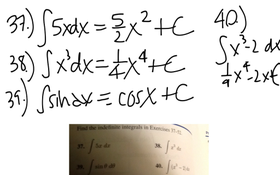 37.) ∫5xdx = 5/2 x² + C
38.) ∫x³dx = 1/4 x⁴ + C
39.) ∫sin dx = cosx + C
40.)
∫x³-2 dx
1/4 x⁴-2x+C
Find the indefinite integrals in Exercises 37-52.
37. ∫5x dx
38. ∫x³ dx
39. ∫sin θ dθ
40. ∫(x³ - 2) dx